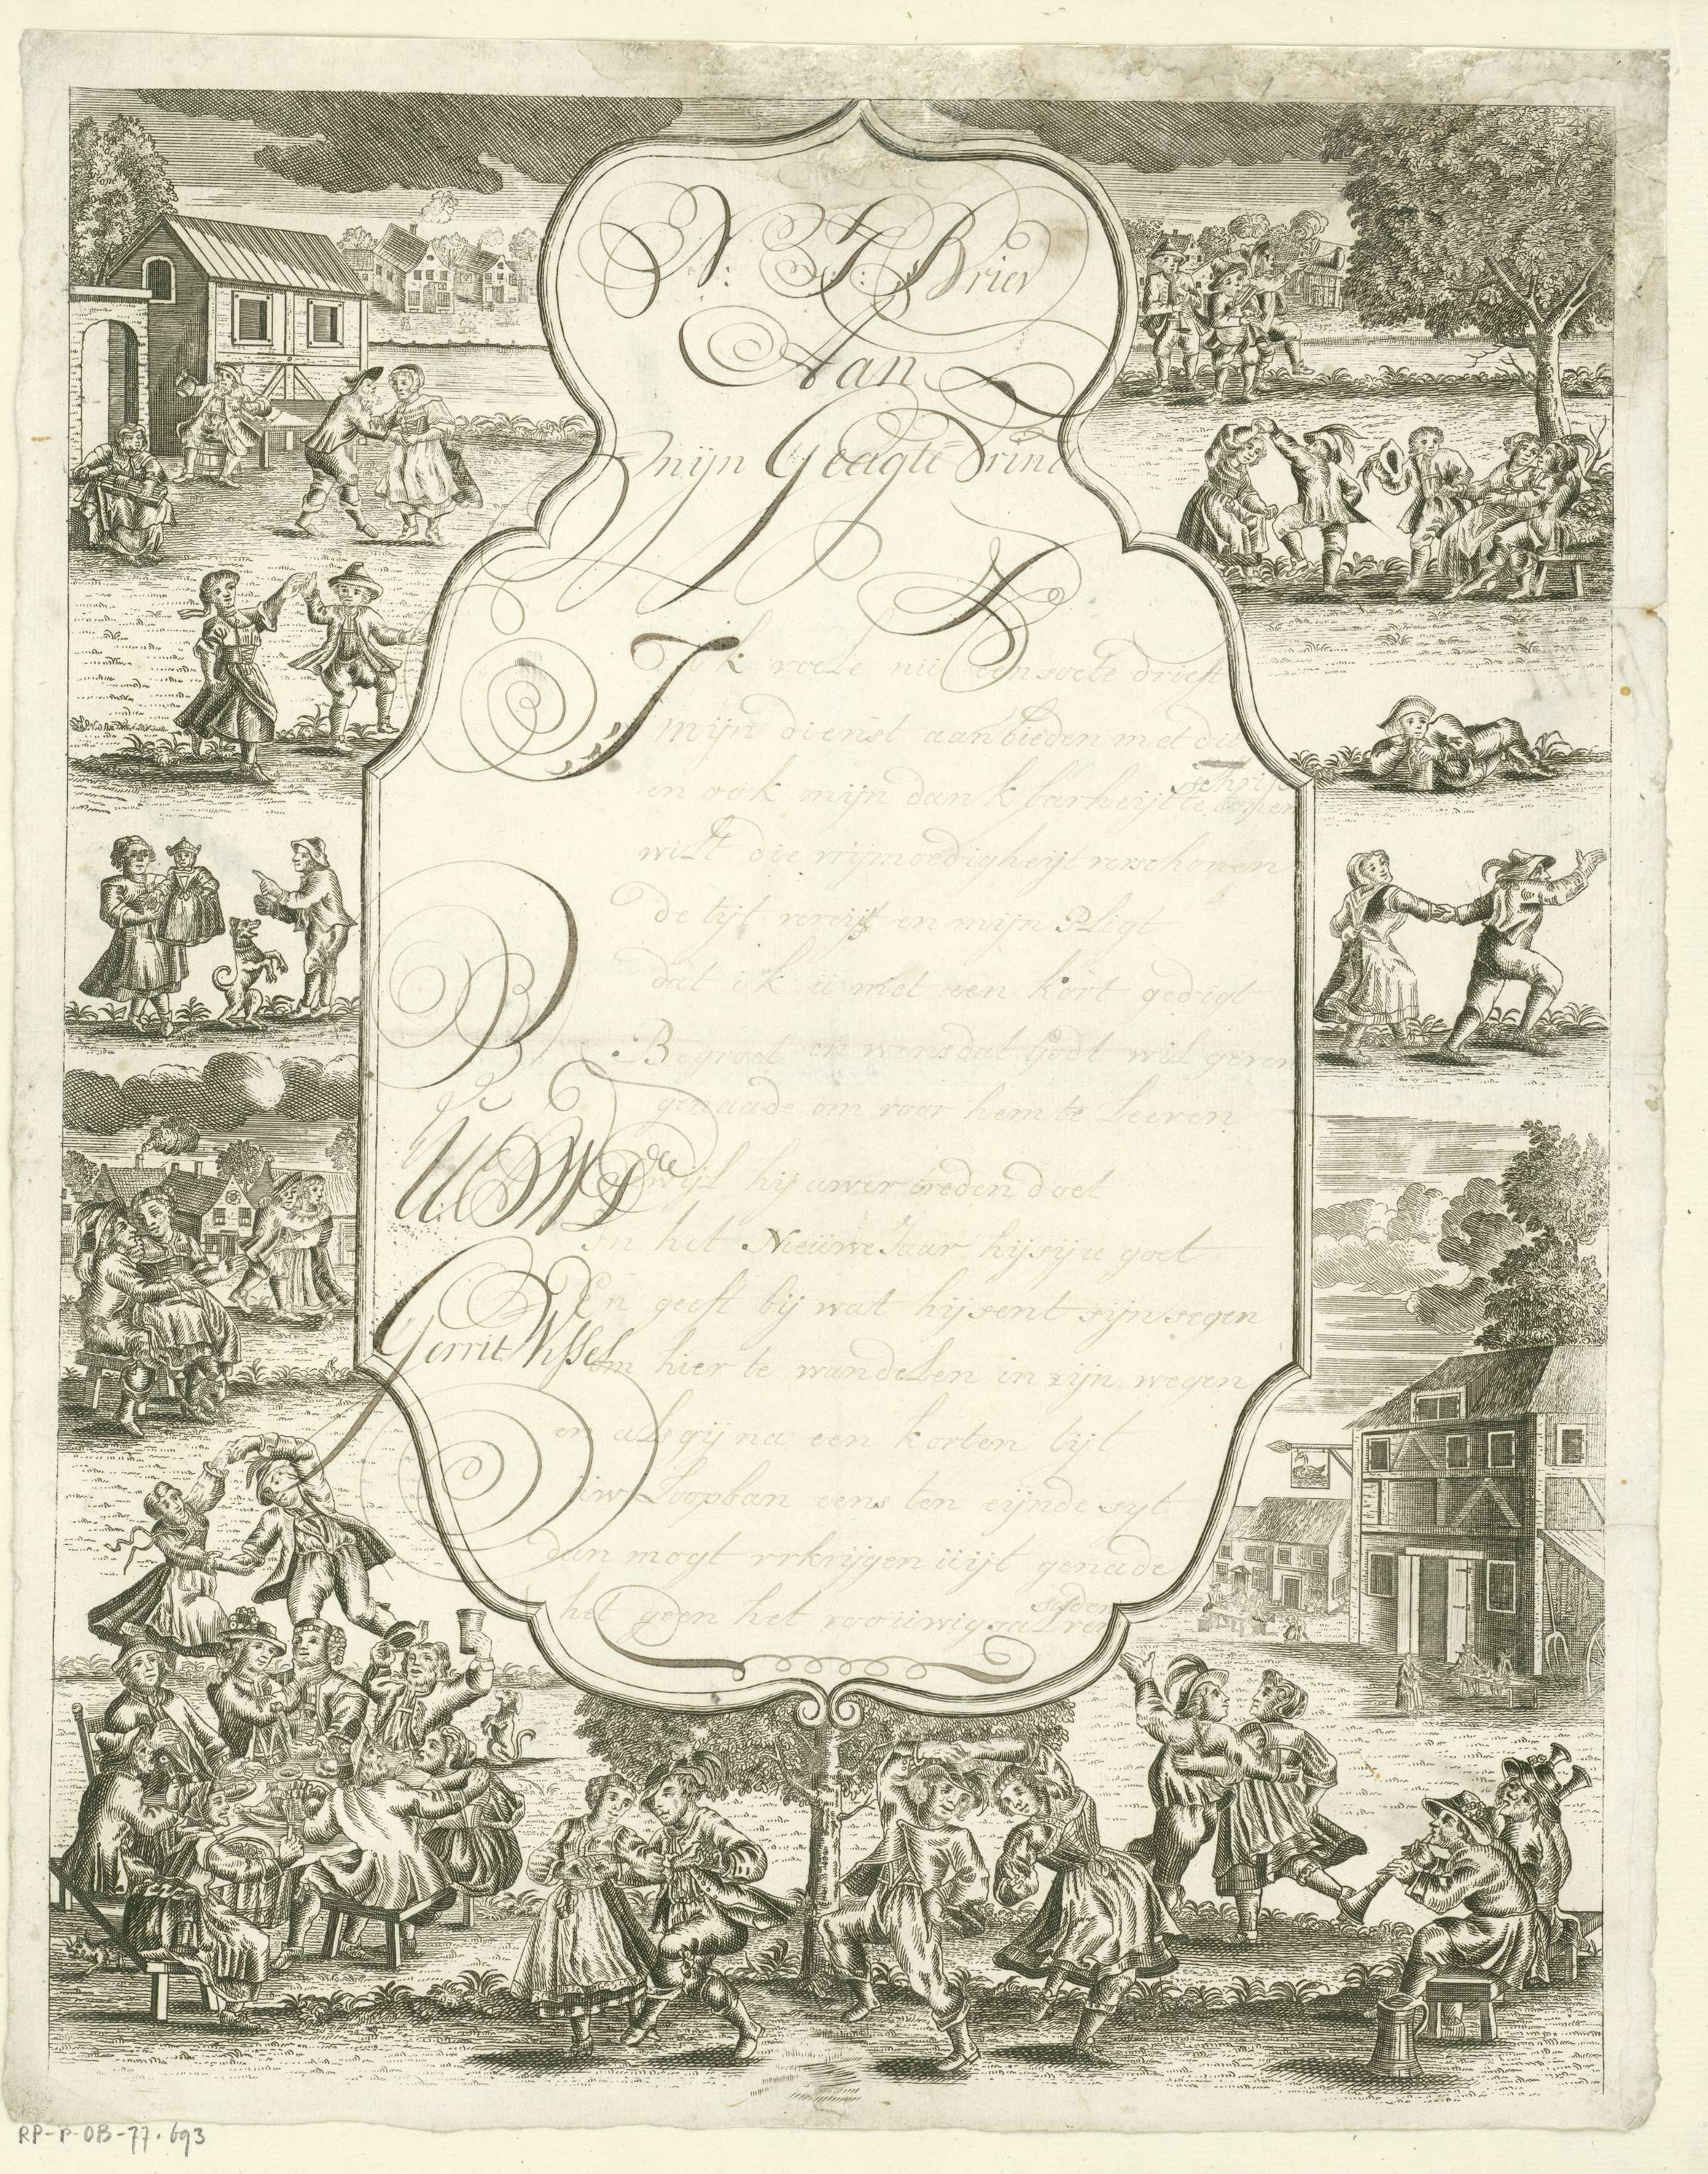 N: J: Briev
Aan
mijn Geagte Vrint
Ik voele nu een soete drift
mijn dienst aanbieden met dit
schrift
en ook mijn dankbarheijt te
wilt die vrijmoedigheijt verschonen
de tijt vereijst en mijn Pligt
dat ik u met een kort gedigt
Begroet en wens dat Godt wil geven
genaade om voor hem te Leeven
wijl hij uwer treden doet
In het Nieuwe Jaar hij sij u goet
En geeft bij wat hij sent sijn segen
om hier te wandelen in zijn wegen
en als gij na een korten tijt
uw Loopban eens ten eijnde sijt
dan mogt verkrijgen uijt genade
het geen het
UEDWDe
Gerrit Vissel
RP-P-OB-77.693